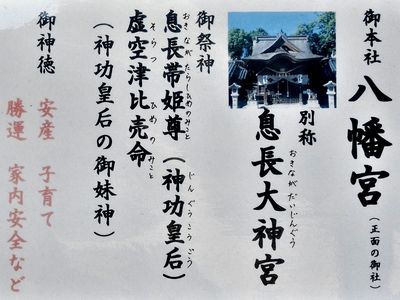 御本社 八幡宮(正面の御社)
別称
息長大神宮
おきながだいじんぐう
御祭神
息長帯姫尊(神功皇后)
おきながたらしひめのみこと じんぐうこうごう
虚空津比売命
そらつひめのみこと
(神功皇后の御妹神)
御神徳
安産 子育て
勝運 家内安全など